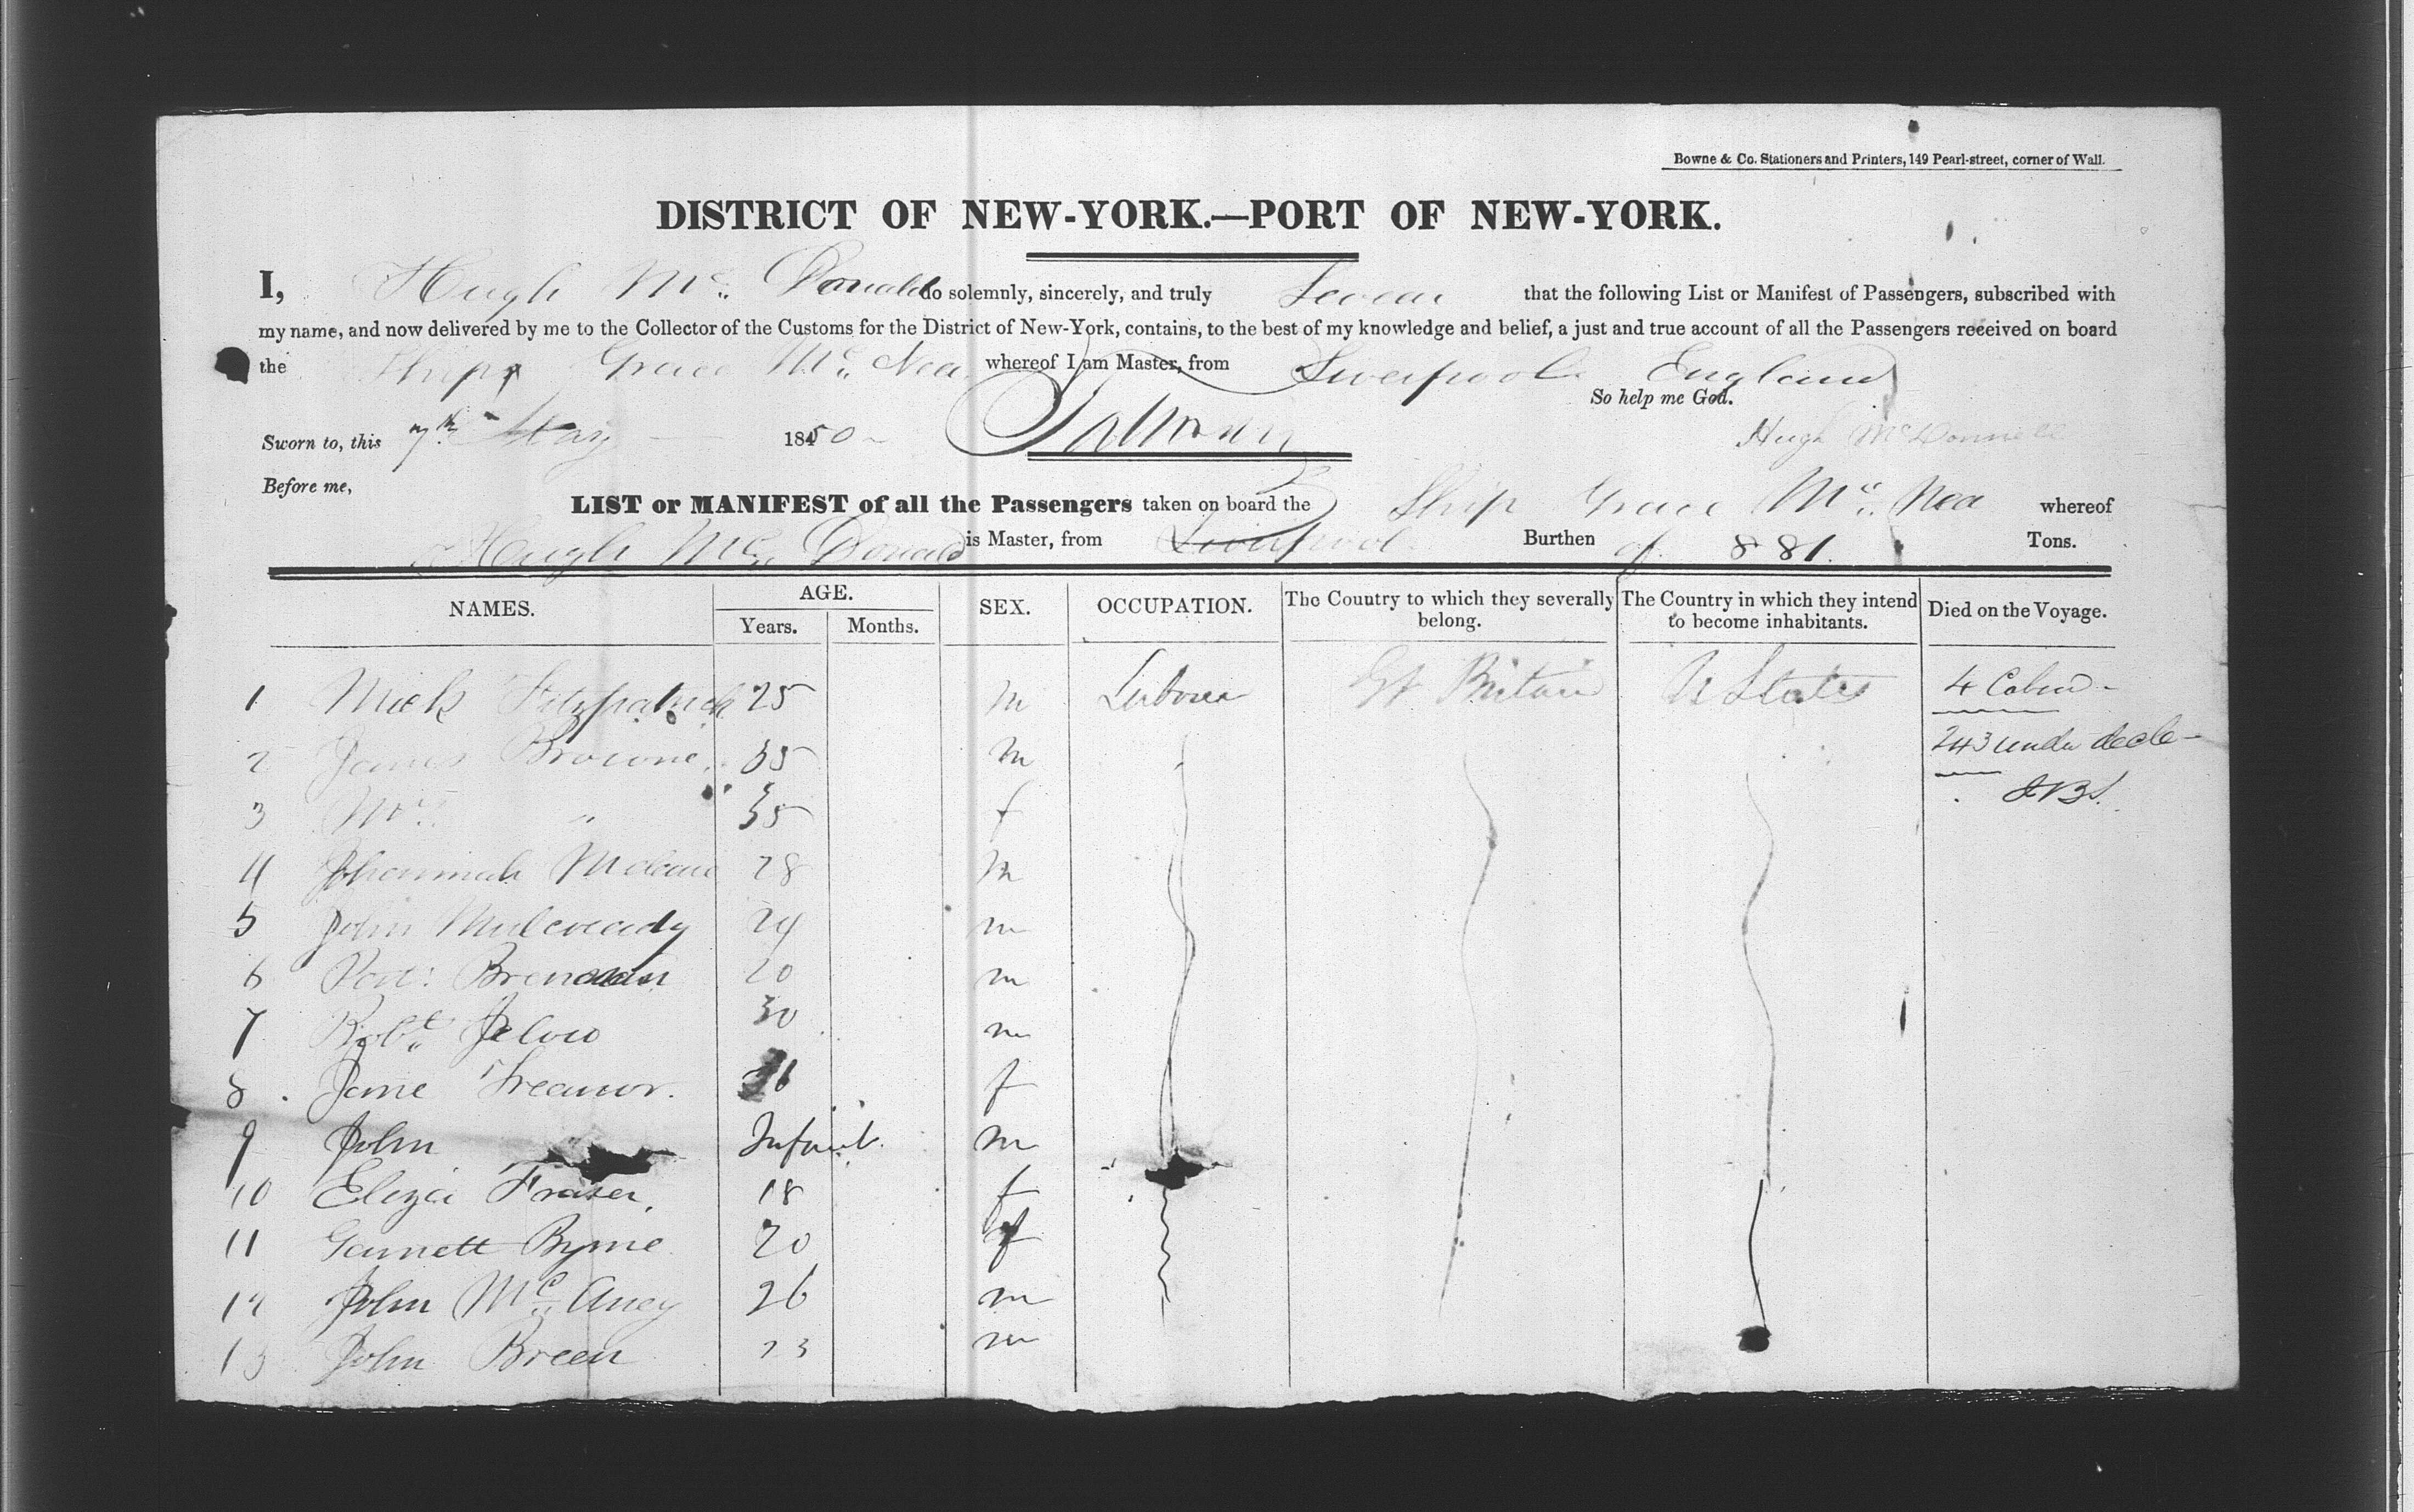 Bowne & Co. Stationers and Printers, 149 Pearl-street, corner of Wall.
DISTRICT OF NEW-YORK.—PORT OF NEW-YORK.
I, Hugh Mc. Donald do solemnly, sincerely, and truly Swear that the following List or Manifest of Passengers, subscribed with
my name, and now delivered by me to the Collector of the Customs for the District of New-York, contains, to the best of my knowledge and belief, a just and true account of all the Passengers received on board
the Ship Grace Mc. Nea whereof I am Master, from Liverpool England
So help me God.
Sworn to, this 7th May 1850 Hugh McDonnell
Before me,
LIST or MANIFEST of all the Passengers taken on board the Ship Grace Mc. Nea whereof
Hugh Mc. Donald is Master, from Liverpool Burthen of 881. Tons.
NAMES. AGE. SEX. OCCUPATION. The Country to which they severally belong. The Country in which they intend to become inhabitants. Died on the Voyage.
Years. Months.
1 Mick Fitzpatrick 25 m Labourer Gt Britain U States 4 Cabin
2 James Browne 35 m 243 under deck
3 Mrs. " 35 f
4 28 m
5 John 24 m
6 Brennan 20 m
7 Robt. 30 m
8 Jane Treanor. f
9 John Infant. m
10 Eliza Fraser. 18 f
11 Garnett Byrne 20 f
12 John Mc. Aney 26 m
13 John Breen 23 m